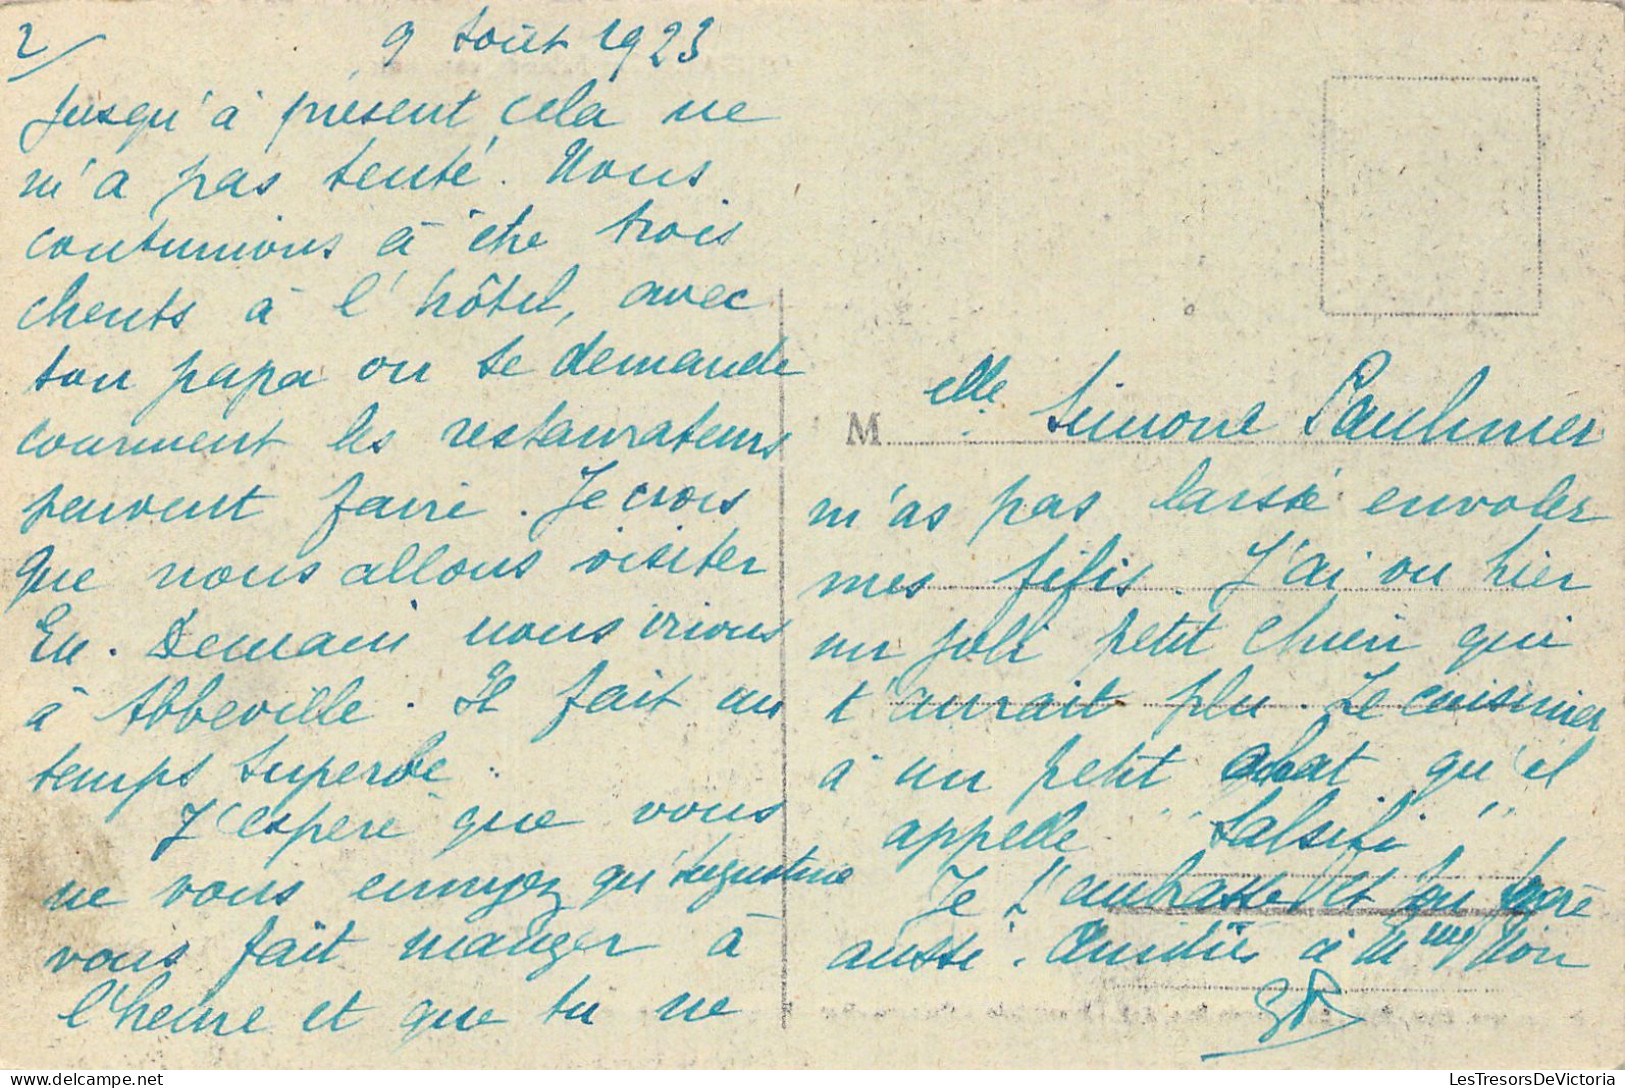 2/
9 Août 1923
Jusqu'à présent cela ne
m'a pas tenté. Nous
continuions à être trois
clients à l'hôtel, avec
ton papa on se demande
comment les restaurateurs
peuvent faire. Je crois
que nous allons visiter
Eu. Demain nous irions
à Abbeville. Il fait un
temps superbe.
J'espere que vous
ne vous ennuyez qu'Augustine
vous fait manger à
l'heure et que tu ne
Melle. Simone Paulmier
m'as pas laissé envoler
mes fifis. J'ai vu hier
un joli petit chien qui
t'aurait plu. Le cuisinier
à un petit chat qu'il
appelle "Salsifi"
Je t'embrasse et ton frère
aussi. Amitiés à Mme Noir
LesTresorsDeVictoria